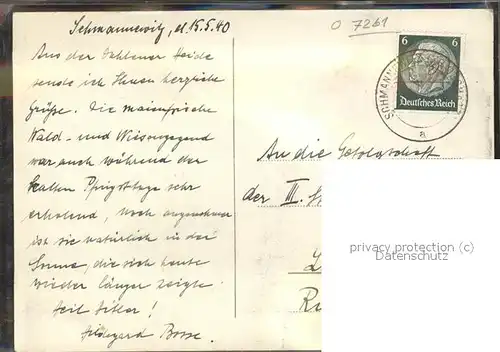 Schmannewitz, d. 15.5.40
Aus der Dahlener Heide
sende ich Ihnen herzliche
Grüße. Die maienfrische
Wald- und Wiesengegend
war auch während der
kalten Pfingsttage sehr
erholend, noch angenehmer
ist sie natürlich in der
Sonne, die sich heute
wieder länger zeigte.
Heil Hitler!
Hildegard Bosse.
O 7261
6 6
Deutsches Reich
SCHMANN
a
An die Gefolgschaft
der III.
privacy protection (c)
Datenschutz